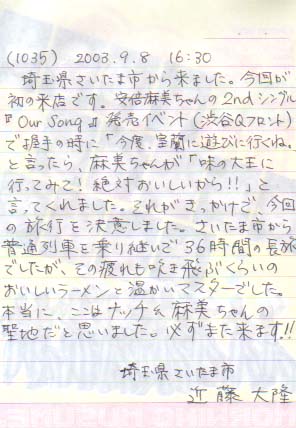 (1035) 2003.9.8 16:30
埼玉県さいたま市から来ました。今回が
初の来店です。安倍麻美ちゃんの2ndシングル
『Our Song』発売イベント(渋谷Qフロント)
で握手の時に「今度、室蘭に遊びに行くね。」
と言ったら、麻美ちゃんが「味の大王に
行ってみて!絶対おいしいから!!」と
言ってくれました。それがきっかけで、今回
の旅行を決意しました。さいたま市から
普通列車を乗り継いで36時間の長旅
でしたが、その疲れも吹き飛ぶくらいの
おいしいラーメンと温かいマスターでした。
本当に、ここはナッチ&麻美ちゃんの
聖地だと思いました。必ずまた来ます!!
埼玉県さいたま市
近藤大隆